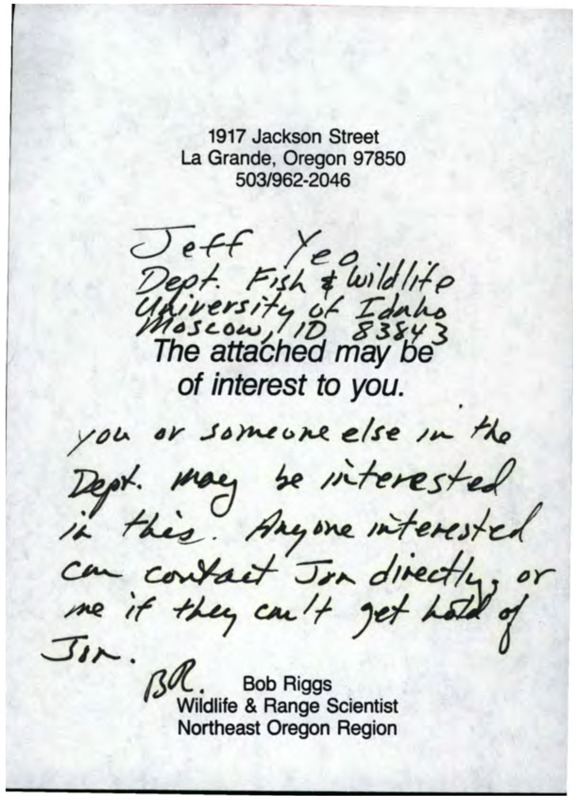 1917 Jackson Street
La Grande, Oregon 97850
503/962-2046
Jeff Yeo
Dept. Fish & Wildlife
University of Idaho
Moscow, ID 83843
The attached may be
of interest to you.
you or someone else in the
Dept. may be interested
in this. Anyone interested
can contact Jon directly, or
me if they can't get hold of
Jon.
BR.
Bob Riggs
Wildlife & Range Scientist
Northeast Oregon Region